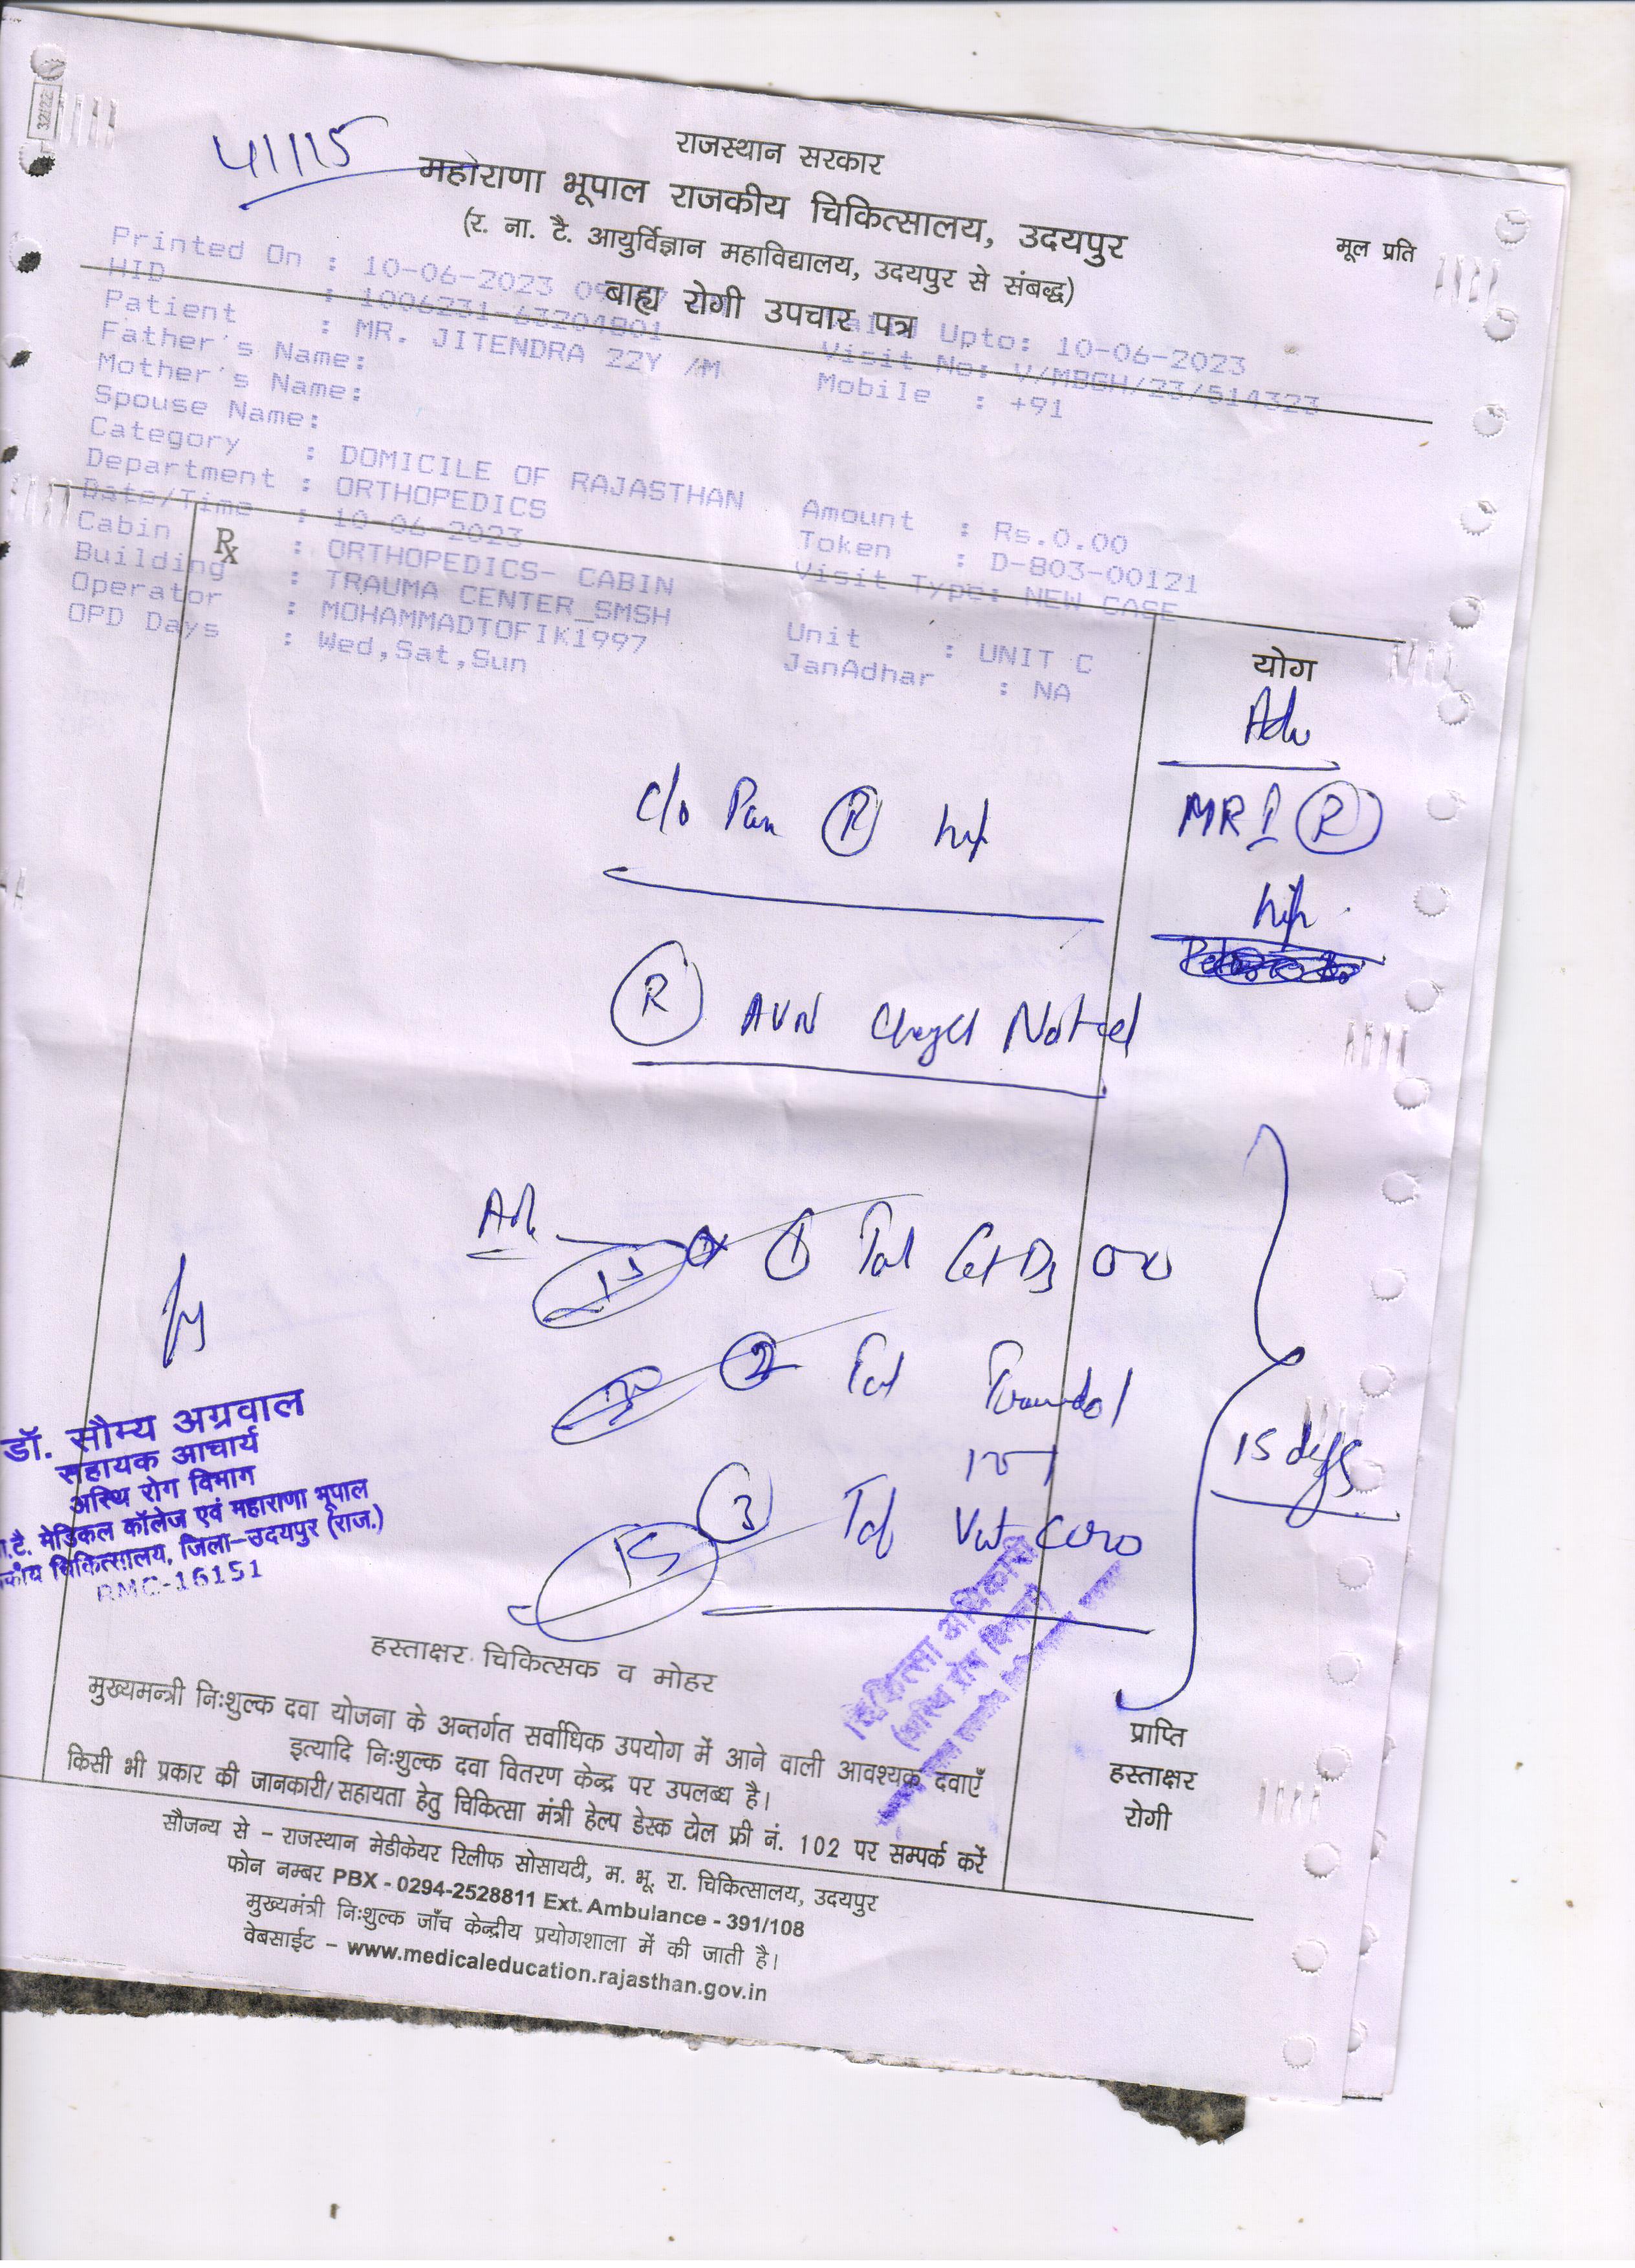 32122
41115
राजस्थान सरकार
महाराणा भूपाल राजकीय चिकित्सालय, उदयपुर
(र. ना. टै. आयुर्विज्ञान महाविद्यालय, उदयपुर से संबद्ध)
मूल प्रति
बाह्य रोगी उपचार पत्र
Printed On : 10-06-2023
Upto: 10-06-2023
HID : 1006231-63204801
Visit No: V/MBGH/23/514323
Patient : MR. JITENDRA 22Y /M
Mobile : +91
Father's Name:
Mother's Name:
Spouse Name:
Category : DOMICILE OF RAJASTHAN
Amount : Rs.0.00
Department : ORTHOPEDICS
Token : D-803-00121
Date/Time : 10-06-2023
Visit Type: NEW CASE
Cabin : ORTHOPEDICS- CABIN
Rx
Building : TRAUMA CENTER_SMSH
Unit : UNIT C
Operator : MOHAMMADTOFIK1997
JanAdhar : NA
OPD Days : Wed,Sat,Sun
योग
Adv
c/o Pain R hip
MRI R
hip
R AVN changes Noted
Adv
15 1 Tab
2 Tab
15 days
15 3 Tab
डॉ. सौम्य अग्रवाल
सहायक आचार्य
अस्थि रोग विभाग
.टै. मेडिकल कॉलेज एवं महाराणा भूपाल
चिकित्सालय, जिला-उदयपुर (राज.)
RMC-16151
चिकित्सा अधिकारी
हस्ताक्षर चिकित्सक व मोहर
मुख्यमन्त्री निःशुल्क दवा योजना के अन्तर्गत सर्वाधिक उपयोग में आने वाली आवश्यक दवाएँ
इत्यादि निःशुल्क दवा वितरण केन्द्र पर उपलब्ध है।
किसी भी प्रकार की जानकारी/सहायता हेतु चिकित्सा मंत्री हेल्प डेस्क टोल फ्री नं. 102 पर सम्पर्क करें
प्राप्ति
हस्ताक्षर
रोगी
सौजन्य से – राजस्थान मेडीकेयर रिलीफ सोसायटी, म. भू. रा. चिकित्सालय, उदयपुर
फोन नम्बर PBX - 0294-2528811 Ext. Ambulance - 391/108
मुख्यमंत्री निःशुल्क जाँच केन्द्रीय प्रयोगशाला में की जाती है।
वेबसाईट – www.medicaleducation.rajasthan.gov.in